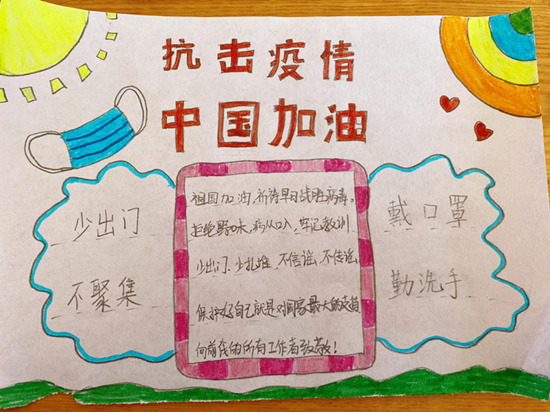 抗击疫情
中国加油
少出门
不聚集
祖国加油,祈待早日战胜病毒。
拒绝野味,病从口入,牢记教训
少出门、少扎堆、不信谣、不传谣。
保护好自己就是对国家最大的支持
向前线的所有工作者致敬!
戴口罩
勤洗手